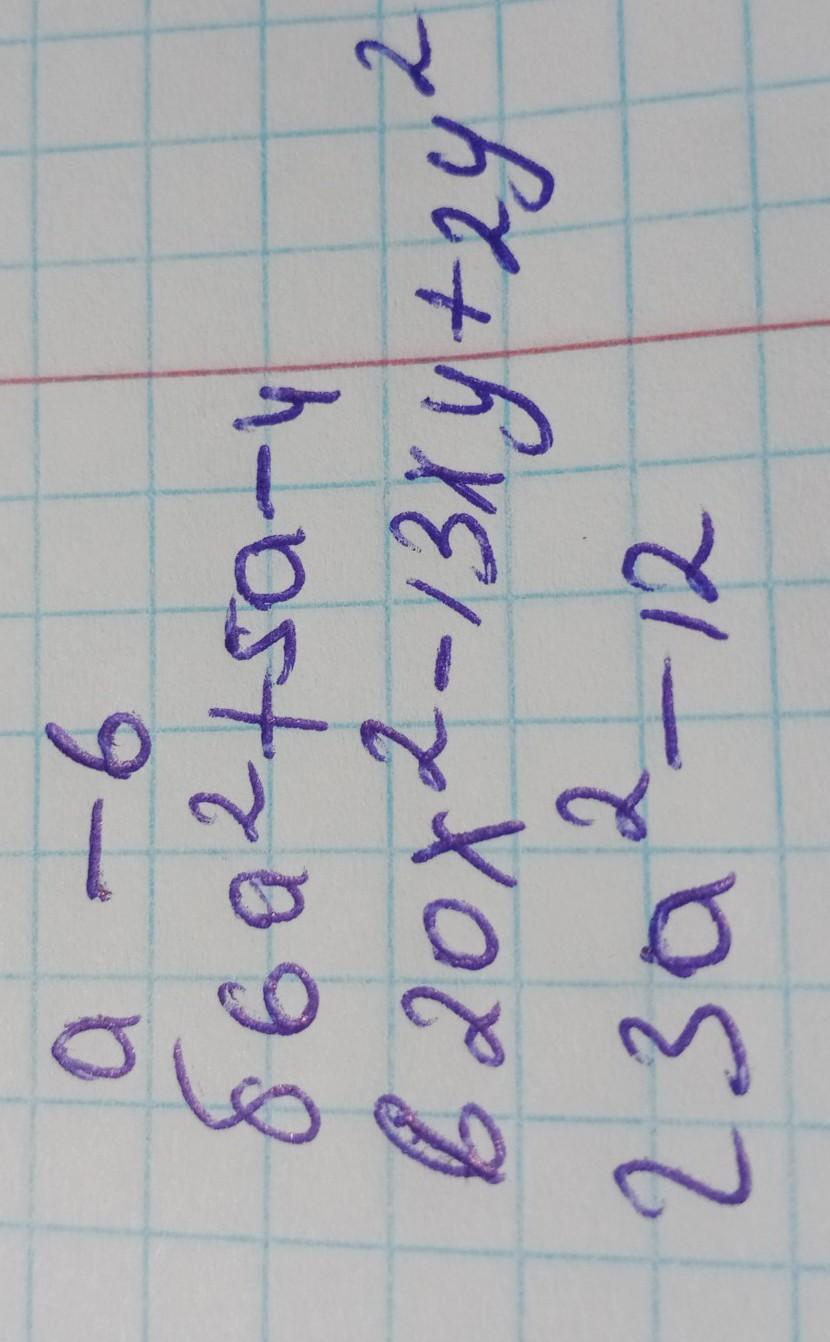 а -6
б 6a²+5a-4
в 20x²-13xy+2y²
г 3a²-12